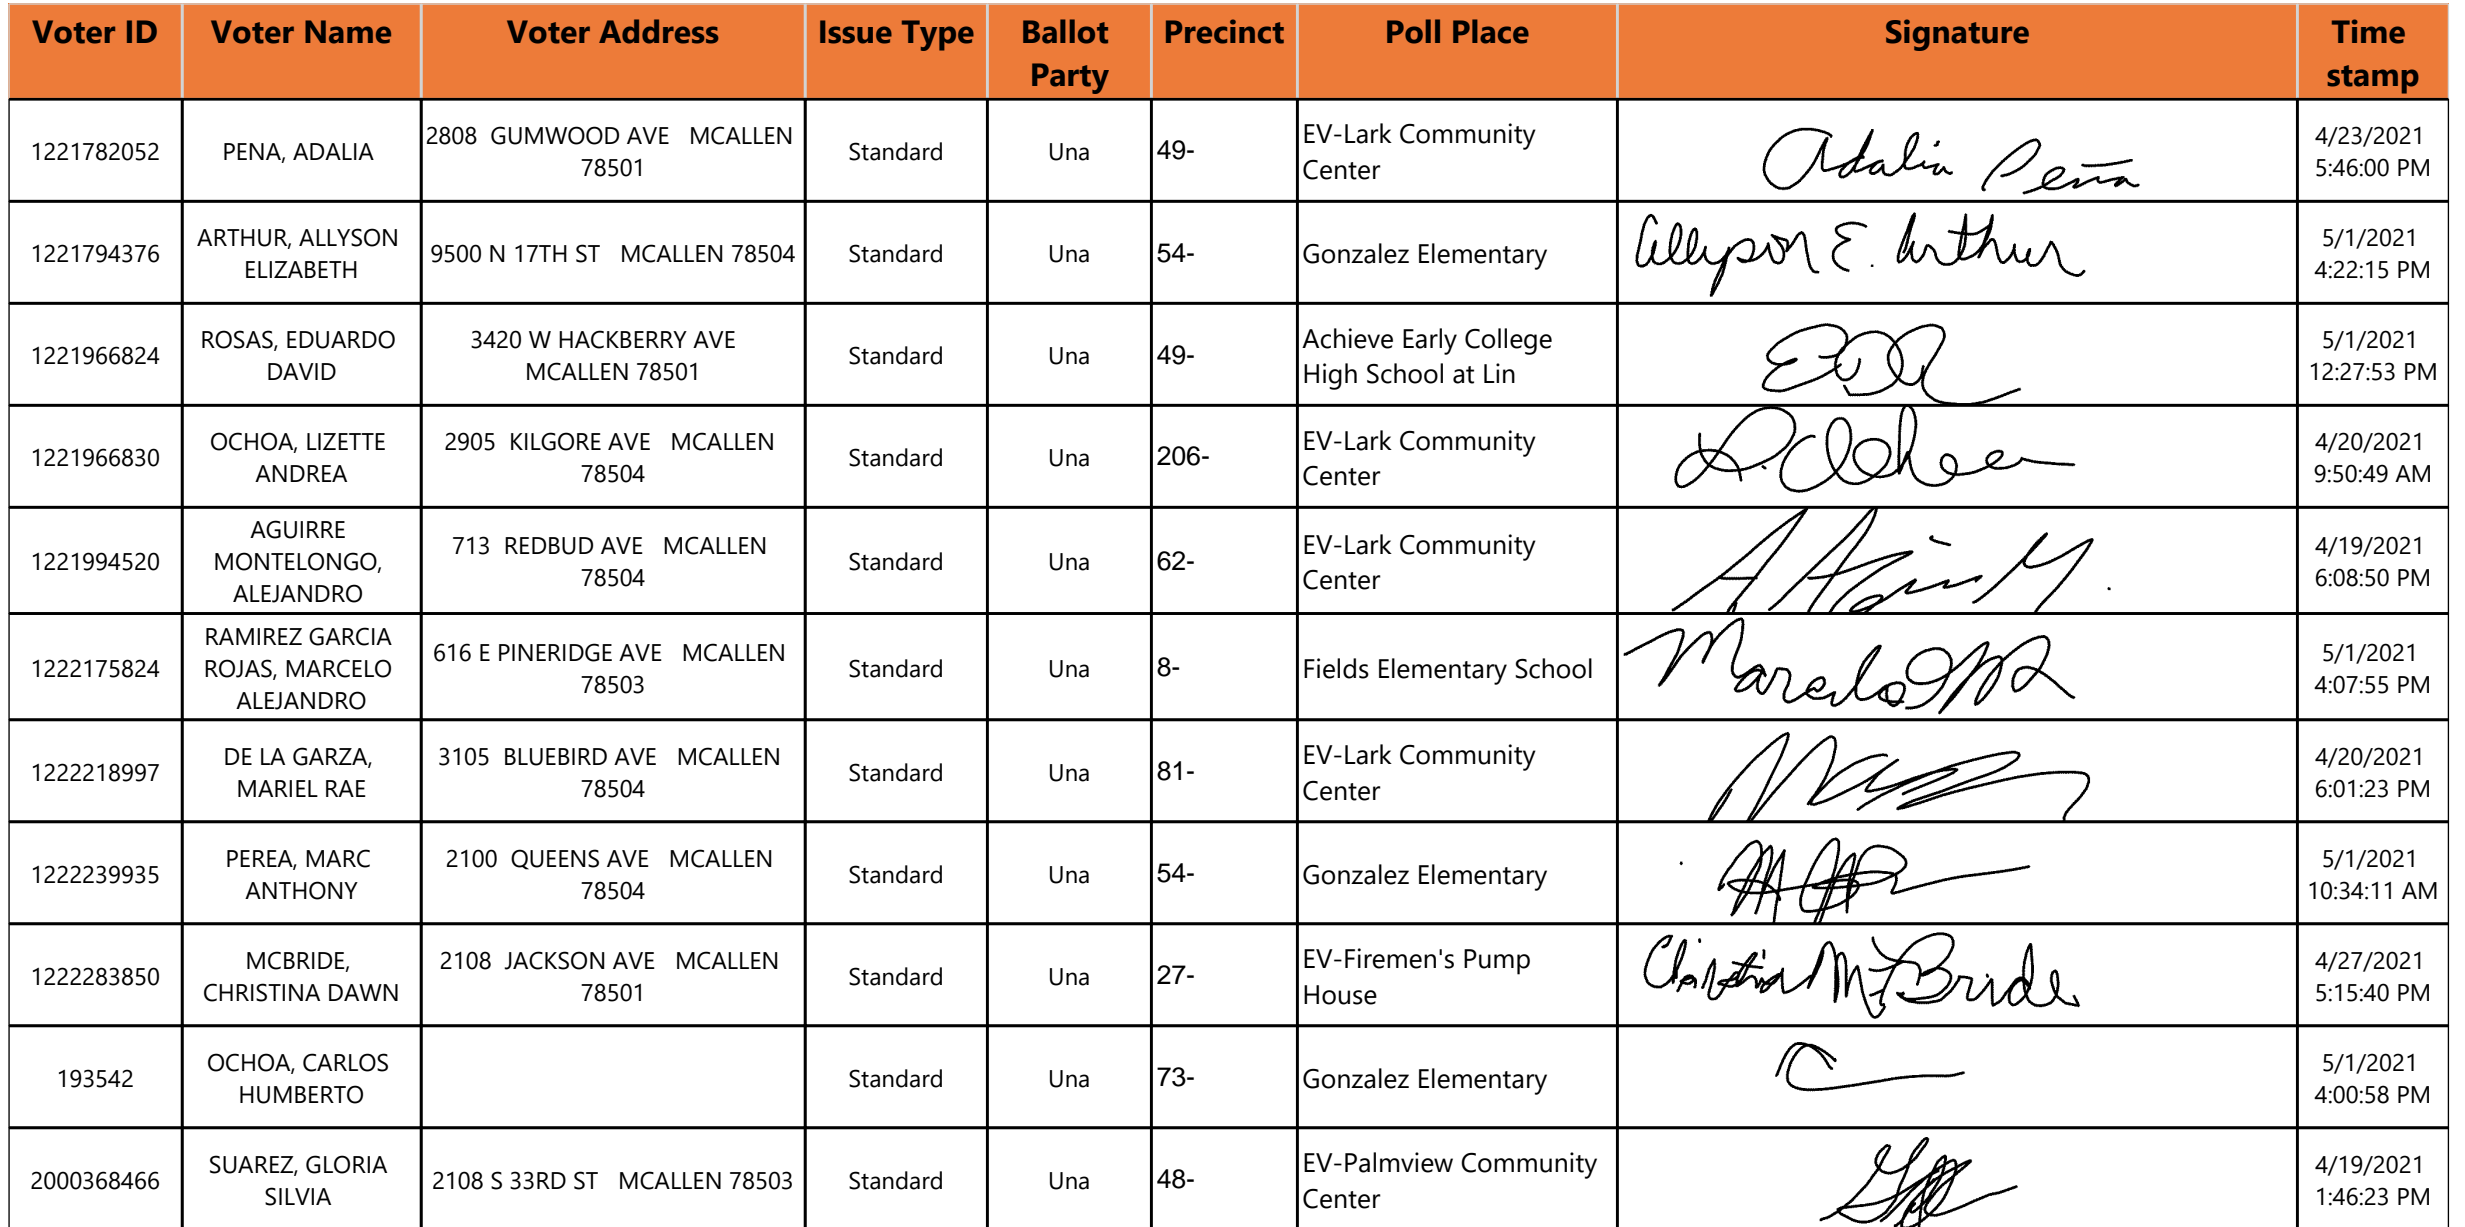 Voter ID Voter Name Voter Address Issue Type Ballot Party Precinct Poll Place Signature Time stamp
1221782052 PENA, ADALIA 2808 GUMWOOD AVE MCALLEN 78501 Standard Una 49- EV-Lark Community Center Adalia Peña 4/23/2021 5:46:00 PM
1221794376 ARTHUR, ALLYSON ELIZABETH 9500 N 17TH ST MCALLEN 78504 Standard Una 54- Gonzalez Elementary Allyson E. Arthur 5/1/2021 4:22:15 PM
1221966824 ROSAS, EDUARDO DAVID 3420 W HACKBERRY AVE MCALLEN 78501 Standard Una 49- Achieve Early College High School at Lin EDR 5/1/2021 12:27:53 PM
1221966830 OCHOA, LIZETTE ANDREA 2905 KILGORE AVE MCALLEN 78504 Standard Una 206- EV-Lark Community Center 4/20/2021 9:50:49 AM
1221994520 AGUIRRE MONTELONGO, ALEJANDRO 713 REDBUD AVE MCALLEN 78504 Standard Una 62- EV-Lark Community Center 4/19/2021 6:08:50 PM
1222175824 RAMIREZ GARCIA ROJAS, MARCELO ALEJANDRO 616 E PINERIDGE AVE MCALLEN 78503 Standard Una 8- Fields Elementary School Marcelo 5/1/2021 4:07:55 PM
1222218997 DE LA GARZA, MARIEL RAE 3105 BLUEBIRD AVE MCALLEN 78504 Standard Una 81- EV-Lark Community Center 4/20/2021 6:01:23 PM
1222239935 PEREA, MARC ANTHONY 2100 QUEENS AVE MCALLEN 78504 Standard Una 54- Gonzalez Elementary 5/1/2021 10:34:11 AM
1222283850 MCBRIDE, CHRISTINA DAWN 2108 JACKSON AVE MCALLEN 78501 Standard Una 27- EV-Firemen's Pump House Christina McBride 4/27/2021 5:15:40 PM
193542 OCHOA, CARLOS HUMBERTO Standard Una 73- Gonzalez Elementary 5/1/2021 4:00:58 PM
2000368466 SUAREZ, GLORIA SILVIA 2108 S 33RD ST MCALLEN 78503 Standard Una 48- EV-Palmview Community Center 4/19/2021 1:46:23 PM